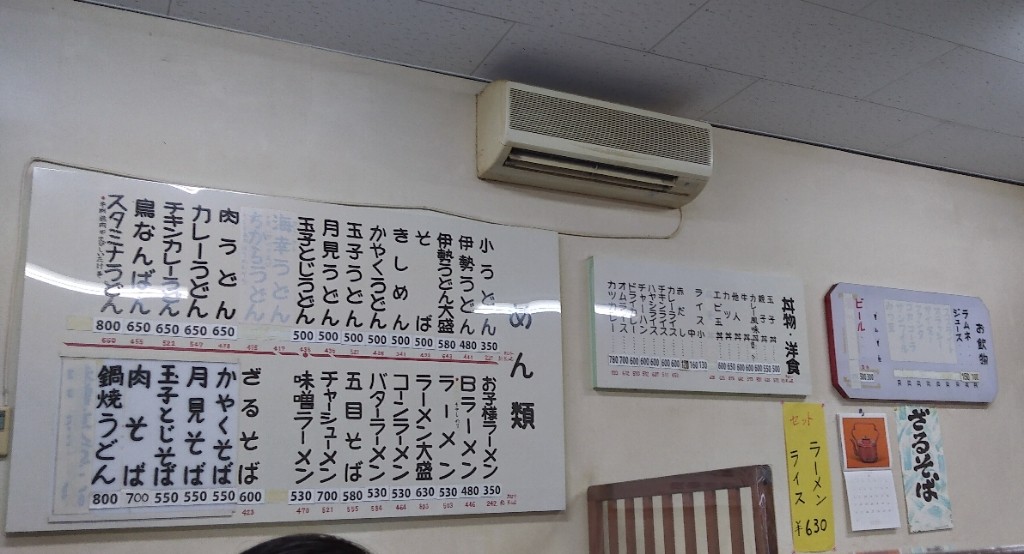 めん類
小うどん 350
伊勢うどん 480
伊勢うどん大盛 580
そば 500
きしめん 500
かやくうどん 500
玉子うどん 500
月見うどん 500
玉子とじうどん 500
海幸うどん
ちからうどん
肉うどん 650
カレーうどん 650
チキンカレーうどん 650
鳥なんばん 650
スタミナうどん 800
お子様ラーメン 350
Bラーメン 480
ラーメン 530
ラーメン大盛 630
コーンラーメン 530
バターラーメン 530
五目そば 580
チャシューメン 700
味噌ラーメン 530
ざるそば 600
かやくそば 550
月見そば 550
玉子とじそば 550
肉そば 700
鍋焼うどん 800
丼物 洋食
玉子丼
親子丼
カレー風味丼
牛丼
他人丼
カツ丼
エビ玉丼
ライス 中 小
赤だし
カレーライス
チキンライス
ハヤシライス
チャーハン
ドライカレー
オムライス
カツカレー
お飲物
ラムネ
ジュース
ビール
セット
ラーメン
ライス
¥630
ざるそば